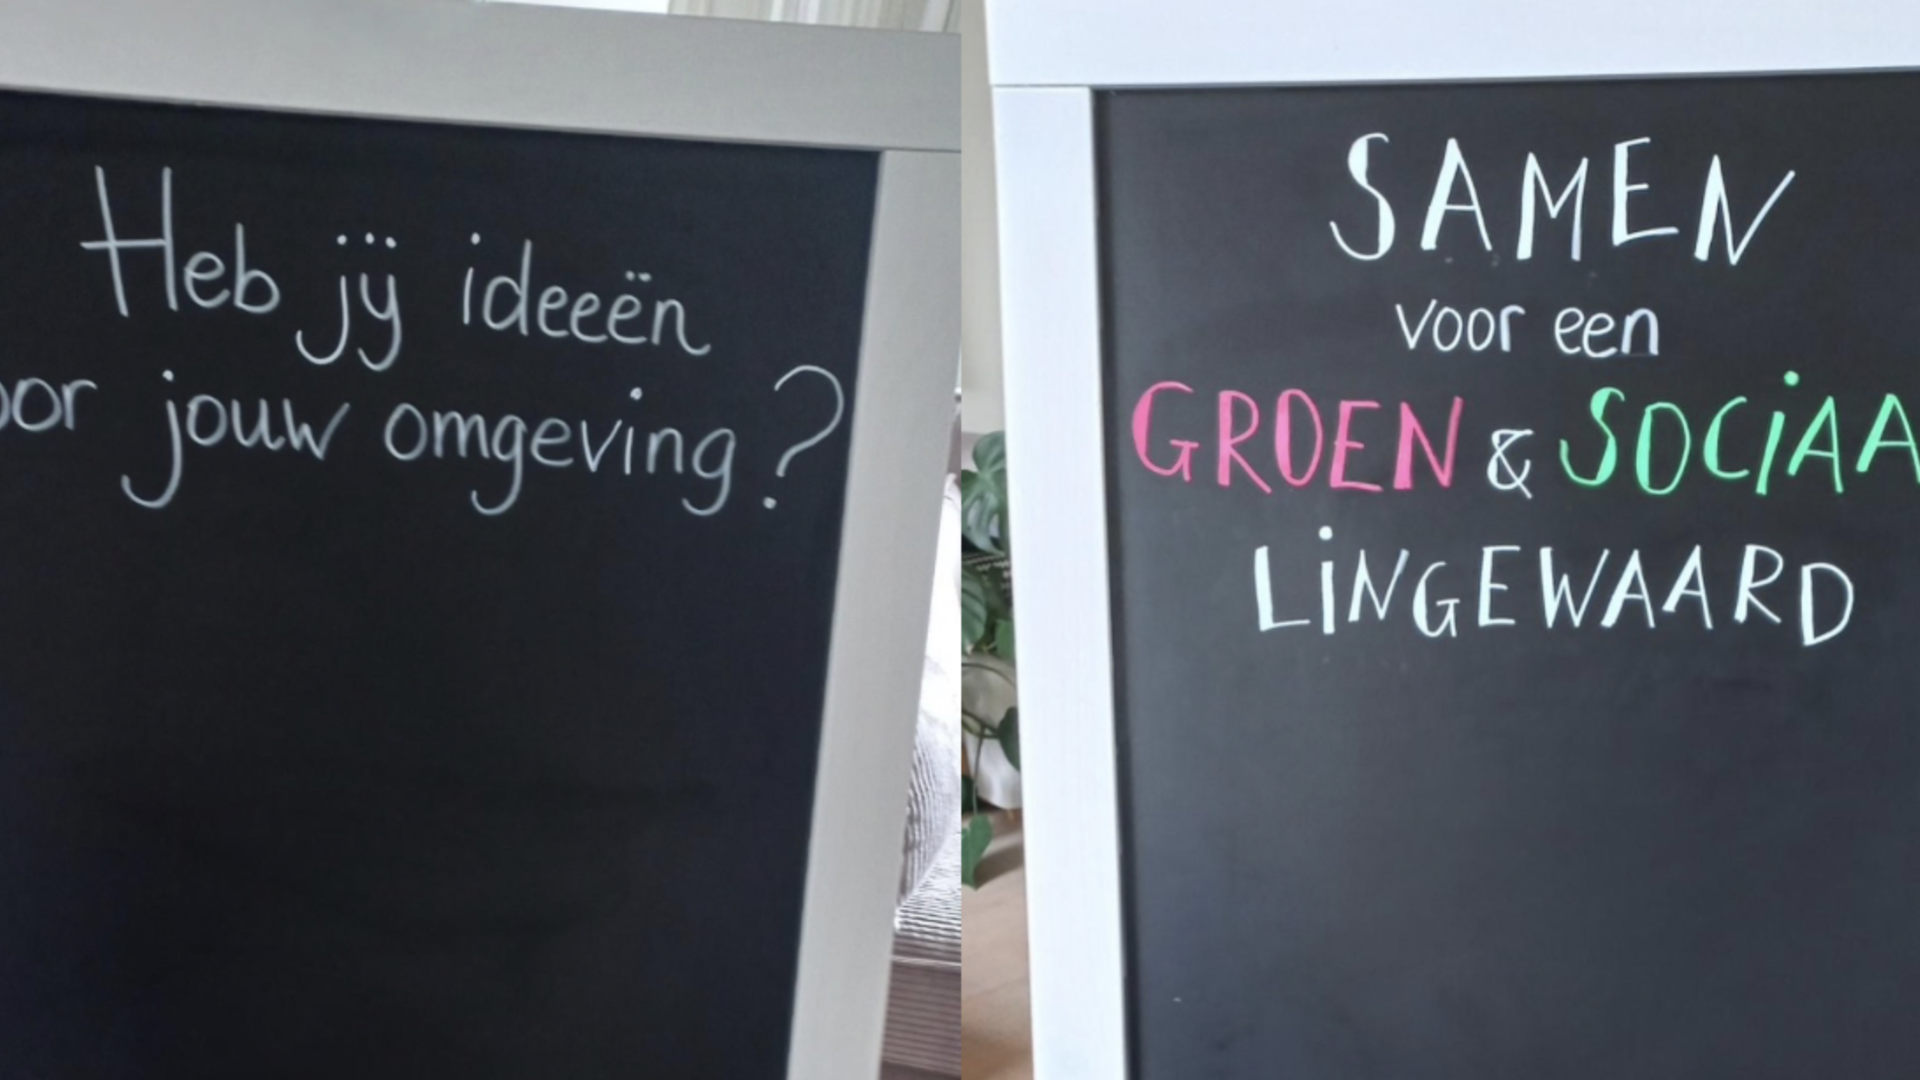 Heb jij ideeën
oor jouw omgeving?
SAMEN
voor een
GROEN & SOCIAA
LiNGEWAARD